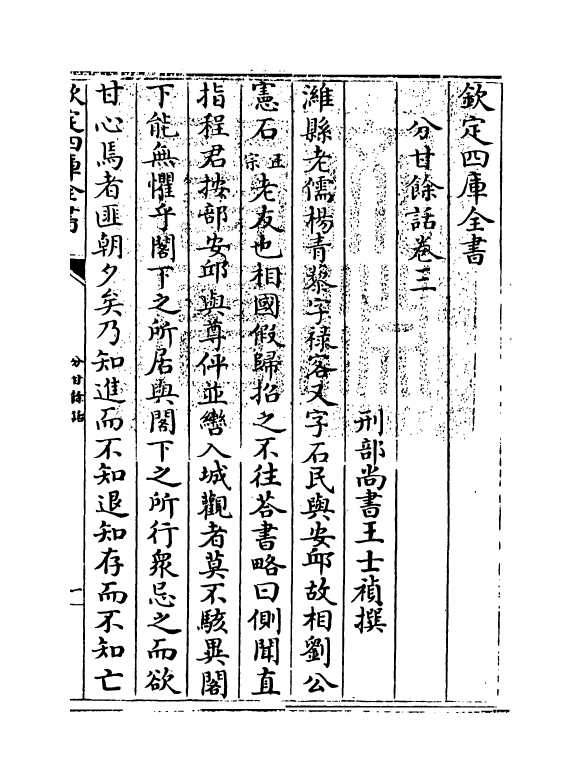 欽定四庫全書
分甘餘話卷三
刑部尚書王士禎撰
濰縣老儒楊青藜字祿客又字石民與安邱故相劉公
憲石正宗老友也相國假歸招之不往荅書略曰側聞直
指程君按部安邱與尊伻並轡入城觀者莫不駭異閣
下能無懼乎閣下之所居與閣下之所行衆忌之而欲
甘心焉者匪朝夕矣乃知進而不知退知存而不知亡
欽定四庫全書
分甘餘話
一